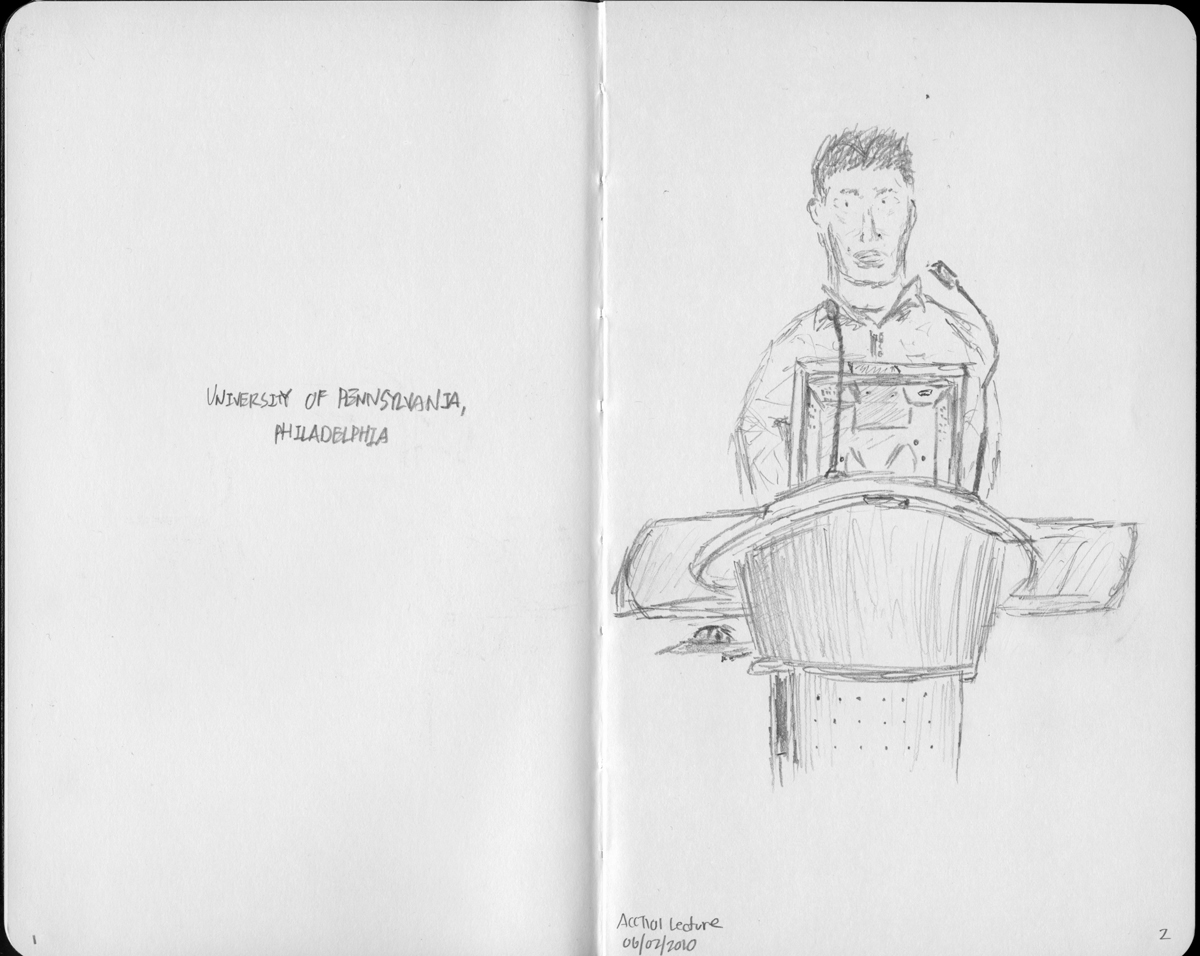 UNIVERSITY OF PENNSYLVANIA,
PHILADELPHIA
1
ACCT101 Lecture
06/02/2010
2